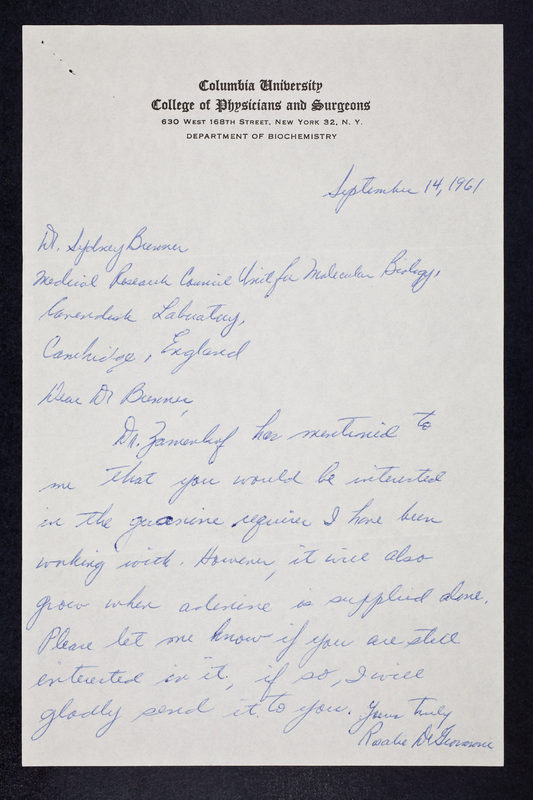 Columbia University
College of Physicians and Surgeons
630 West 168th Street, New York 32, N. Y.
DEPARTMENT OF BIOCHEMISTRY
September 14, 1961
Dr. Sydney Brenner
Medical Research Council Unit for Molecular Biology,
Cavendish Laboratory,
Cambridge, England
Dear Dr Brenner,
Dr. Zamenhof has mentioned to
me that you would be interested
in the guanine requirer I have been
working with. However, it will also
grow when adenine is supplied alone.
Please let me know if you are still
interested in it, if so, I will
gladly send it to you. Yours truly
Rosalie De Giovanni